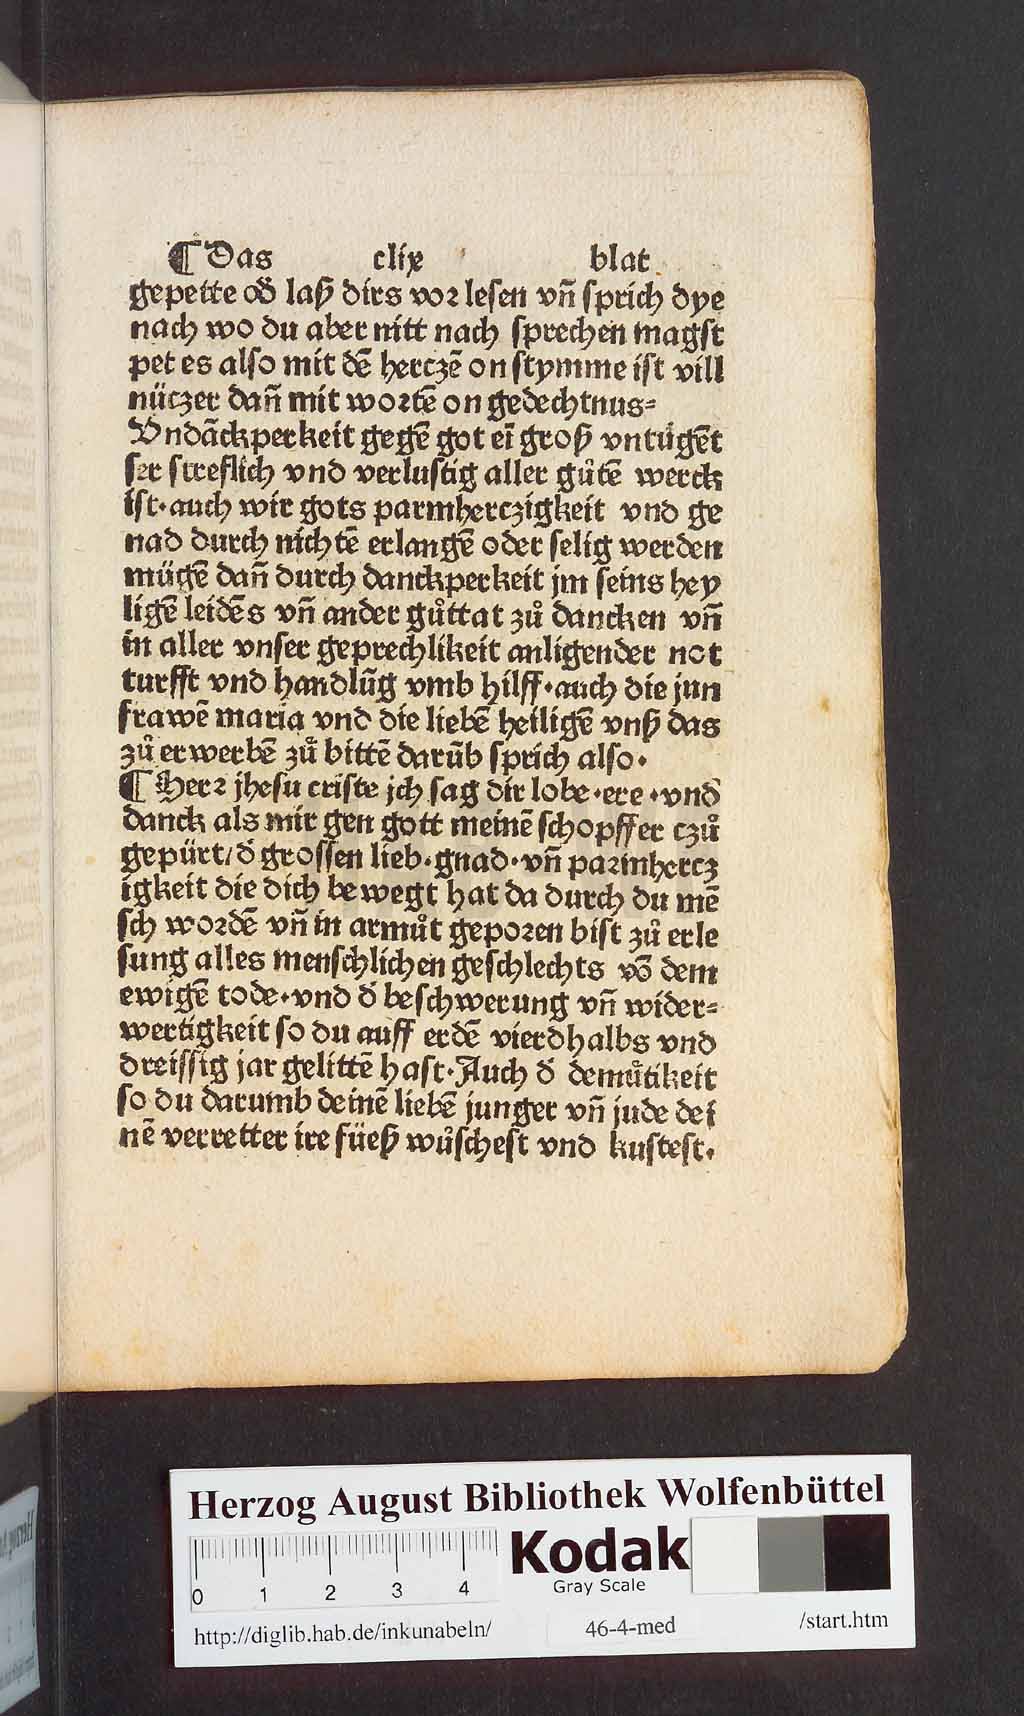 ¶ Das clix blat
gepette od̛ laß dirs vor lesen vn̄ sprich dye
nach wo du aber nitt nach sprechen magst
pet es also mit dē herczē on stymme ist vill
nüczer dan̄ mit wortē on gedechtnus=
Vndāckperkeit gegē got eī groß vntugēt
ser streflich vnd verlustig aller gůtē werck
ist· auch wir gots parmherczigkeit vnd ge
nad durch nichtē erlangē oder selig werden
mügē dan̄ durch danckperkeit jm seins hey
ligē leidēs vn̄ ander gůttat zů dancken vn̄
in aller vnser geprechlikeit anligender not
turfft vnd handlūg vmb hilff· auch die jun
frawē maria vnd die liebē heiligē vnß das
zů erwerbē zů bittē darūb sprich also·
¶ Herr jhesu criste jch sag dir lobe· ere· vnd
danck als mir gen gott meinē schopffer czů
gepürt/ d̛ grossen lieb· gnad· vn̄ parmhercz
igkeit die dich bewegt hat da durch du mē
sch wordē vn̄ in armůt geporen bist zů erle
sung alles menschlichen geschlechts vō dem
ewigē tode· vnd d̛ beschwerung vn̄ wider=
wertigkeit so du auff erdē vierdhalbs vnd
dreissig jar gelittē hast· Auch d̛ demůtikeit
so du darumb deinē liebē junger vn̄ jude dei
nē verretter ire füeß wůschest vnd kustest·
Herzog August Bibliothek Wolfenbüttel
0 1 2 3 4
Kodak
Gray Scale
http://diglib.hab.de/inkunabeln/ 46-4-med /start.htm